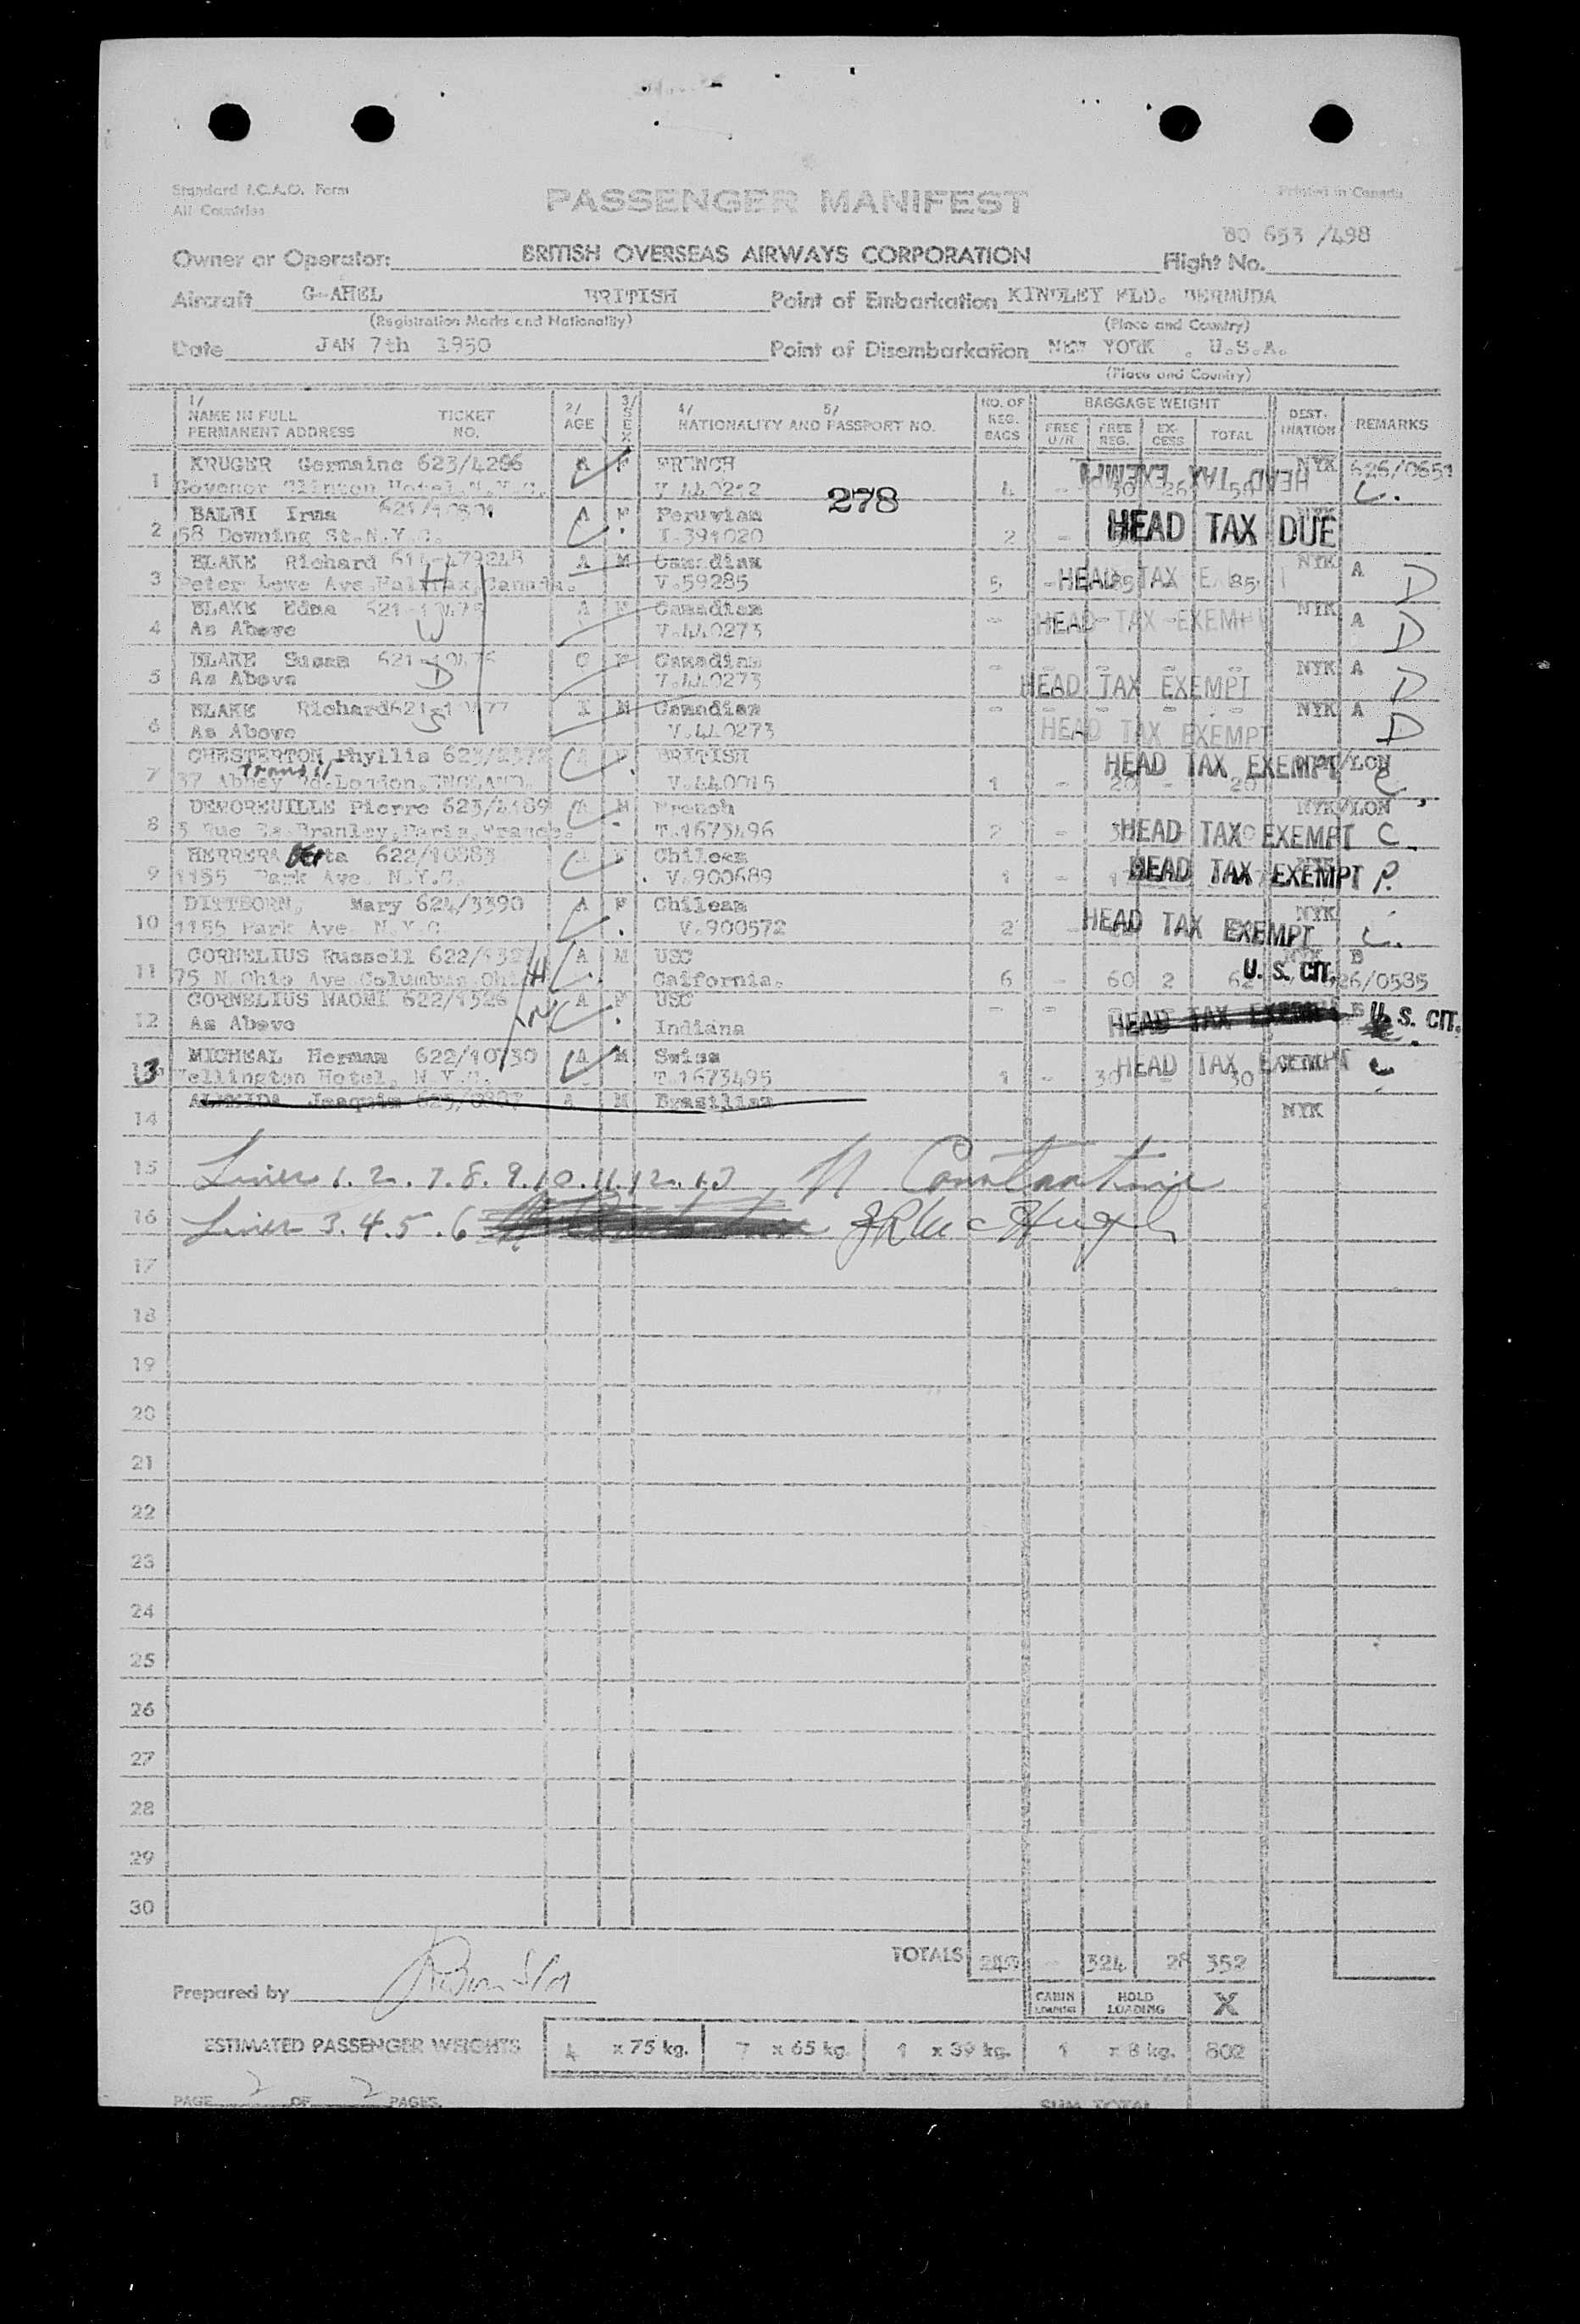 Standard I.C.A.O. Form
All Countries
PASSENGER MANIFEST
Printed in Canada
BO 653 /498
Owner or Operator: BRITISH OVERSEAS AIRWAYS CORPORATION Flight No.
Aircraft G-AHEL BRITISH Point of Embarkation KINDLEY FLD. BERMUDA
(Registration Marks and Nationality) (Place and Country)
Date JAN 7th 1950 Point of Disembarkation NEW YORK . U.S.A.
(Place and Country)
1/ NAME IN FULL PERMANENT ADDRESS TICKET NO. 2/ AGE 3/ SEX 4/ NATIONALITY AND 5/ PASSPORT NO. NO. OF REG. BAGS BAGGAGE WEIGHT FREE U/R FREE REG. EX-CESS TOTAL DEST-INATION REMARKS
1 KRUGER Germaine 623/4266 A F FRENCH HEAD TAX EXEMPT NYK 626/0651
Govenor Clinton Hotel.N.Y.C. V.440212 278 4 - C.
2 BALBI Irma A F Peruvian NYK
68 Downing St.N.Y.C. I.391020 2 - HEAD TAX DUE
3 BLAKE Richard A M Canadian NYK A
Peter Lowe Ave.Halifax,Canada. V.59285 5 - HEAD TAX 85 D
4 BLAKE Edna A F Canadian NYK A
As Above W V.440273 - HEAD TAX EXEMPT D
5 BLAKE Susan C F Canadian NYK A
As Above D V.440273 HEAD TAX EXEMPT D
6 BLAKE Richard I M Canadian NYK A
As Above S V.440273 HEAD TAX EXEMPT D
7 CHESTERTON Phyllis A F BRITISH HEAD TAX EXEMPT NYK/LON
Transit
37 Abbey Rd.London,ENGLAND. V.440015 1 - 20 - 20 C
8 Pierre 623/4189 A M French NYK/LON
T.1673496 2 - HEAD TAX EXEMPT C.
9 HERRERA Berta 622/10383 A F Chilean NYK
1155 Park Ave. N.Y.C. V.900689 1 - HEAD TAX EXEMPT P.
10 DITTBORN, Mary 624/3390 A F Chilean NYK
1155 Park Ave. N.Y.C V.900572 2 HEAD TAX EXEMPT C.
11 CORNELIUS Russell A M USC NYK B
75 N Ohio Ave.Columbus,Ohio H California. 6 - 60 2 62 U. S. CIT. 626/0585
12 CORNELIUS NAOMI 622/1328 A F USC - - B
As Above W Indiana HEAD TAX EXEMPT U. S. CIT.
13 MICHEAL Herman 622/10730 A M Swiss NYK
Wellington Hotel, N.Y.C. T.1673495 1 - 30 - 30 HEAD TAX EXEMPT C
14 ALMEIDA Joaquim A M Brasilian NYK
15 Lines 1. 2. 7. 8. 9. 10. 11. 12. 13 Constantine
16 Lines 3. 4. 5. 6
17
18
19
20
21
22
23
24
25
26
27
28
29
30
TOTALS 240 - 324 28 352
Prepared by
CABIN LOADING HOLD LOADING X
ESTIMATED PASSENGER WEIGHTS 4 x 75 kg. 7 x 65 kg. 1 x 39 kg. 1 x 8 kg. 802
PAGE 2 OF 2 PAGES. SUM TOTAL